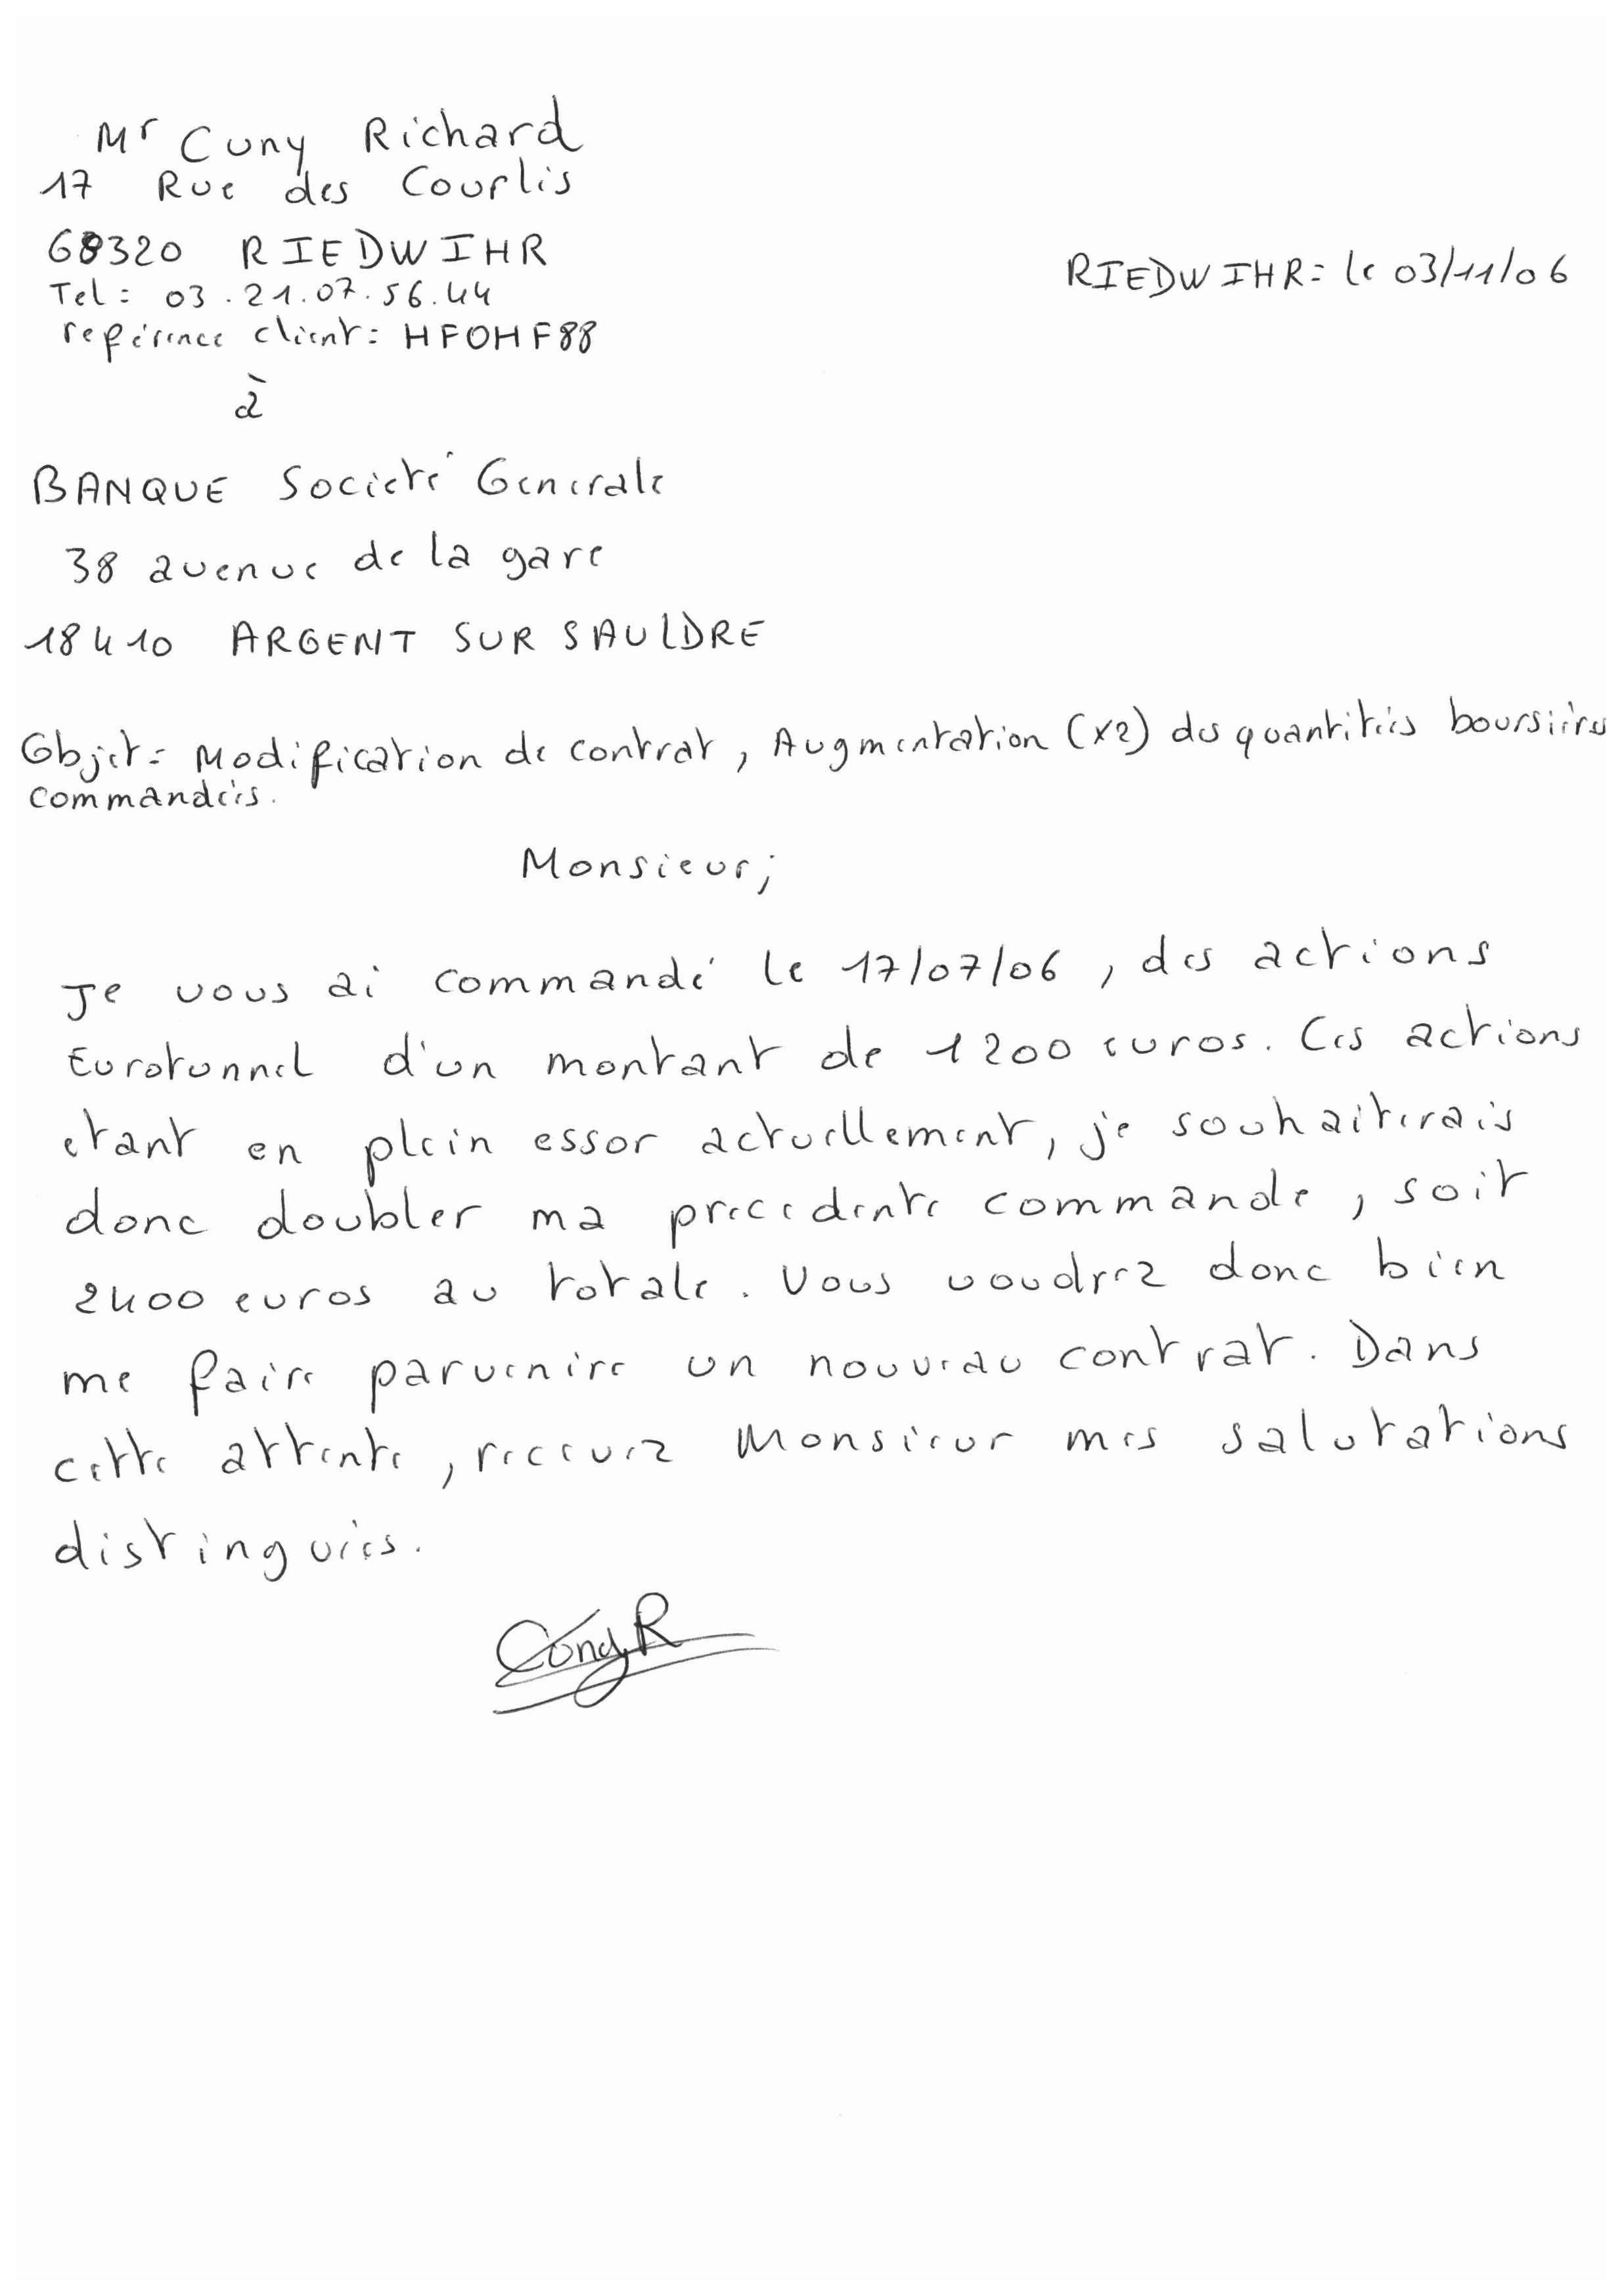 Mr Cuny Richard
17 Rue des Courlis
68320 RIEDWIHR
RIEDWIHR = le 03/11/06
Tel : 03.21.07.56.44
reférence client : HFOHF88
à
BANQUE Societé Generale
38 avenue de la gare
18410 ARGENT SUR SAULDRE
Objet = Modification de contrat, Augmentation (x2) des quantitées boursières
commandées.
Monsieur;
Je vous ai commandé le 17/07/06, des actions
Eurotunnel d'un montant de 1200 euros. Ces actions
etant en plein essor actuellement, je souhaiterais
donc doubler ma precedente commande, soit
2400 euros au totale. Vous voudrez donc bien
me faire parvenire un nouveau contrat. Dans
cette attente, recevez Monsieur mes salutations
distinguées.
Cuny R